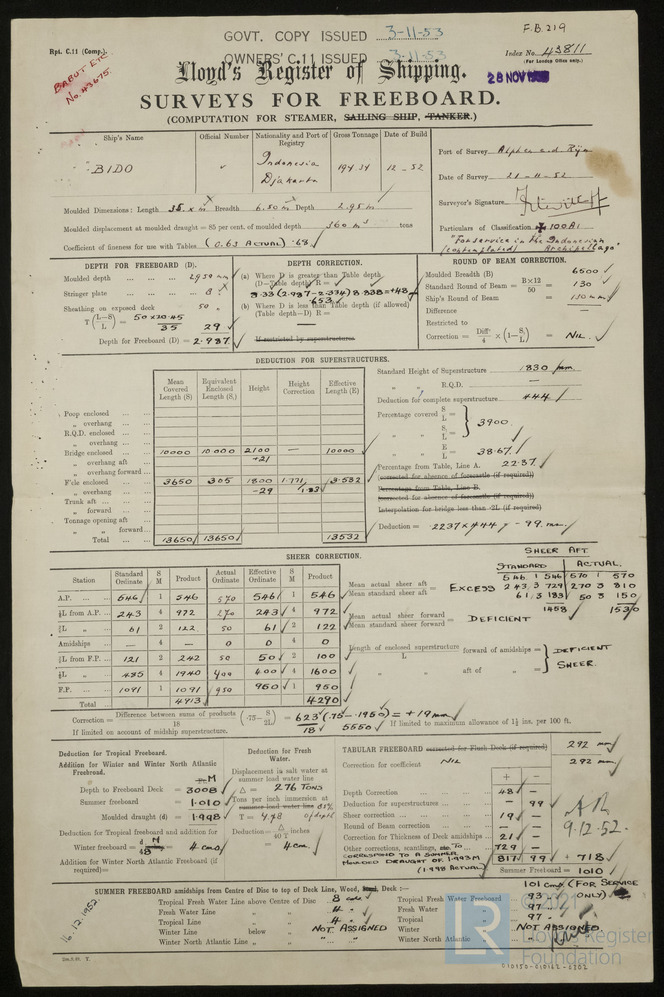 GOVT. COPY ISSUED 3-11-53
F.B. 219
Rpt. C.11 (Comp.).
OWNERS' C.11 ISSUED 3-11-53
Index No. 43811
(For London Office only.)
No. 43675.
Lloyd's Register of Shipping.
28 NOV
SURVEYS FOR FREEBOARD.
(COMPUTATION FOR STEAMER, SAILING SHIP, TANKER.)
Ship's Name
Official Number
Nationality and Port of Registry
Gross Tonnage
Date of Build
BIDO
Indonesia
Djakarta
194.34
12-52
Port of Survey Alphen a.d. Rijn
Date of Survey 21-11-52
Surveyor's Signature
Particulars of Classification 100 A1
"For service in the Indonesian
(contemplated) Archipelago."
Moulded Dimensions: Length 35.x m Breadth 6.50 m Depth 2.95 m
Moulded displacement at moulded draught = 85 per cent. of moulded depth 360 m³ tons
Coefficient of fineness for use with Tables (0.63 ACTUAL) .68
DEPTH FOR FREEBOARD (D).
Moulded depth 2950 mm
Stringer plate 8
Sheathing on exposed deck 50
T (L-S/L) = 50 x 20.45 / 35 29
Depth for Freeboard (D) = 2.987
DEPTH CORRECTION.
(a) Where D is greater than Table depth
(D-Table depth) R =
8.33 (2.987-2.334) 8.338 = +48
.653
(b) Where D is less than Table depth (if allowed)
(Table depth-D) R =
If restricted by superstructures
ROUND OF BEAM CORRECTION.
Moulded Breadth (B) 6500
Standard Round of Beam = B×12/50 = 130
Ship's Round of Beam = 130 mm
Difference
Restricted to
Correction = Diff/4 × (1-S₁/L) = NIL.
DEDUCTION FOR SUPERSTRUCTURES.
Mean Covered Length (S)
Equivalent Enclosed Length (S₁)
Height
Height Correction
Effective Length (E)
Poop enclosed
„ overhang
R.Q.D. enclosed
„ overhang
Bridge enclosed 10000 10000 2100 — 10000
„ overhang aft +21
„ overhang forward
F'cle enclosed 3650 305 1800 1.771 3.532
„ overhang -29 1.83
Trunk aft
„ forward
Tonnage opening aft
„ „ forward
Total 13650 13650 13532
Standard Height of Superstructure 1830 mm
„ „ R.Q.D. —
Deduction for complete superstructure 444
Percentage covered S/L =
„ „ S₁/L = 3900
„ „ E/L = 38.67
Percentage from Table, Line A. 22.37
(corrected for absence of forecastle (if required))
Percentage from Table, Line B.
(corrected for absence of forecastle (if required))
Interpolation for bridge less than .2L (if required)
Deduction = .2237 x 444 = -99. mm
SHEER CORRECTION.
Station
Standard Ordinate
S M
Product
Actual Ordinate
Effective Ordinate
S M
Product
A.P. 546 1 546 570 546 1 546
⅙L from A.P. 243 4 972 270 243 4 972
⅓L „ 61 2 122 50 61 2 122
Amidships — 4 — 0 0 4 0
⅓L from F.P. 121 2 242 50 50 2 100
⅙L „ 485 4 1940 400 400 4 1600
F.P. 1091 1 1091 950 950 1 950
Total 4913 4290
Mean actual sheer aft
Mean standard sheer aft = EXCESS
Mean actual sheer forward
Mean standard sheer forward = DEFICIENT
Length of enclosed superstructure forward of amidships =
L
„ „ aft of „ =
DEFICIENT SHEER.
SHEER AFT
STANDARD ACTUAL.
546 1 546 570 1 570
243 3 729 270 3 810
61 3 183 50 3 150
1458 1530
Correction = Difference between sums of products / 18 (.75 - S/2L) = 623/18 (.75 - .1950) = +19 mm
5550
If limited on account of midship superstructure.
If limited to maximum allowance of 1½ ins. per 100 ft.
Deduction for Tropical Freeboard.
Addition for Winter and Winter North Atlantic Freeboard.
M
Depth to Freeboard Deck = 3008
Summer freeboard = 1.010
Moulded draught (d) = 1.998
Deduction for Tropical freeboard and addition for
Winter freeboard = d M/48 = 4 cms
Addition for Winter North Atlantic Freeboard (if required) =
Deduction for Fresh Water.
Displacement in salt water at
summer load water line
Δ = 276 TONS
Tons per inch immersion at
summer load water line 85%
T = 4.78 of depth
Deduction = Δ/40 T inches
= 4 cm
TABULAR FREEBOARD corrected for Flush Deck (if required) 292 mm
Correction for coefficient NIL 292 mm
+ —
Depth Correction 48 —
Deduction for superstructures — 99
Sheer correction 19 —
Round of Beam correction — —
Correction for Thickness of Deck amidships 21 —
Other corrections, scantlings, etc. TO 729 —
CORRESPOND TO A SUMMER
MOULDED DRAUGHT OF 1.993 M
(1.998 ACTUAL)
817 99 + 718
Summer Freeboard = 1010
AR
9.12.52.
SUMMER FREEBOARD amidships from Centre of Disc to top of Deck Line, Wood, Steel, Deck :—
101 cms (FOR SERVICE
ONLY)
Tropical Fresh Water Line above Centre of Disc 8 cms
Fresh Water Line „ „ 4 „
Tropical Line „ „ 4 „
Winter Line below „ NOT ASSIGNED
Winter North Atlantic Line „ „
Tropical Fresh Water Freeboard 93
Fresh Water „ 97
Tropical „ 97
Winter „ NOT ASSIGNED
Winter North Atlantic „
16.12.1952.
LR
© 2021
Lloyd's Register
Foundation
010150-010162-0202